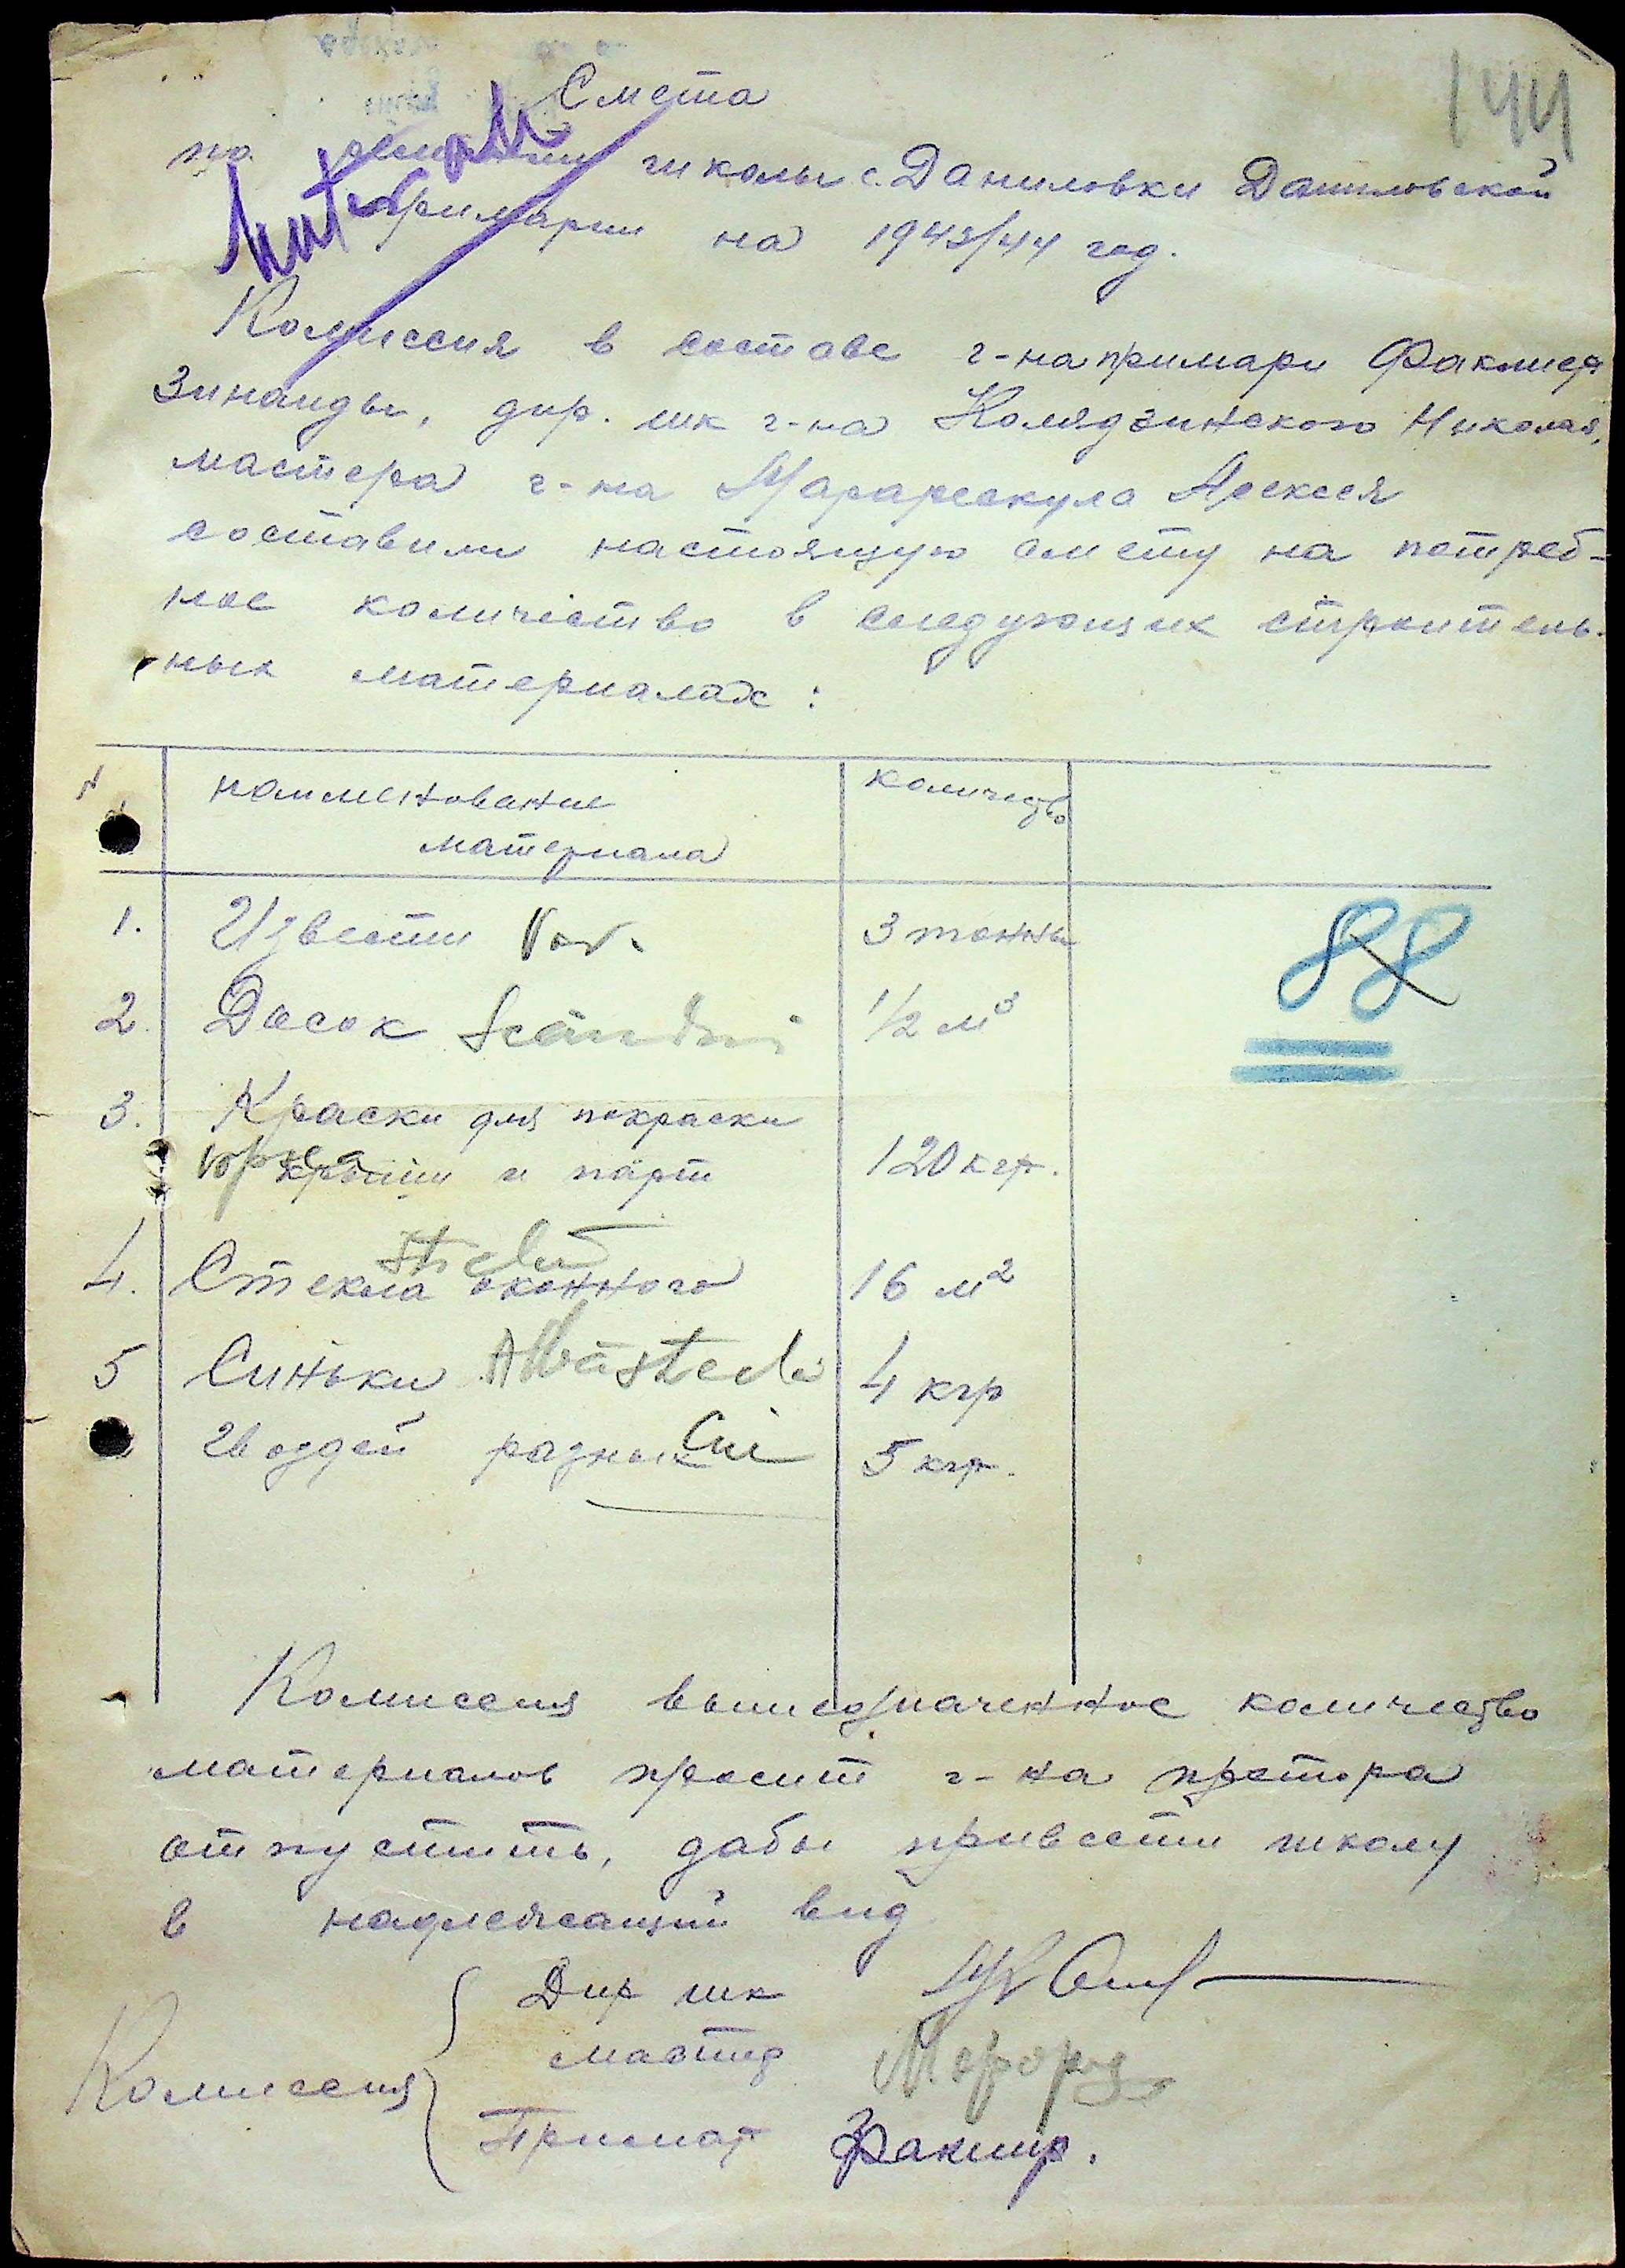 144
Смета
по школы с. Даниловки Даниловской
примарии на 1943/44 год.
Комиссия в составе г-на примари Факлиер
Зинаиды, дир. шк г-на Колядзинского Николая,
мастера г-на Алексея
составили настоящую смету на потреб-
ное количество в следующих строитель-
ных материалах:
N наименование материала количество
1. Извести Var. 3 тонны
2. Досок Scânduri 1/2 м³
3. Краски для покраски
крыши и парт 120 кгр.
Sticlă
4. Стекла оконного 16 м²
5 Синьки Albăstreală 4 кгр
Гвоздей разных Cui 5 кгр.
88
Комиссия вышеозначенное количество
материалов просит г-на претора
отпустить, дабы привести школу
в надлежащий вид
Комиссия
Дир шк
мастер
Примар